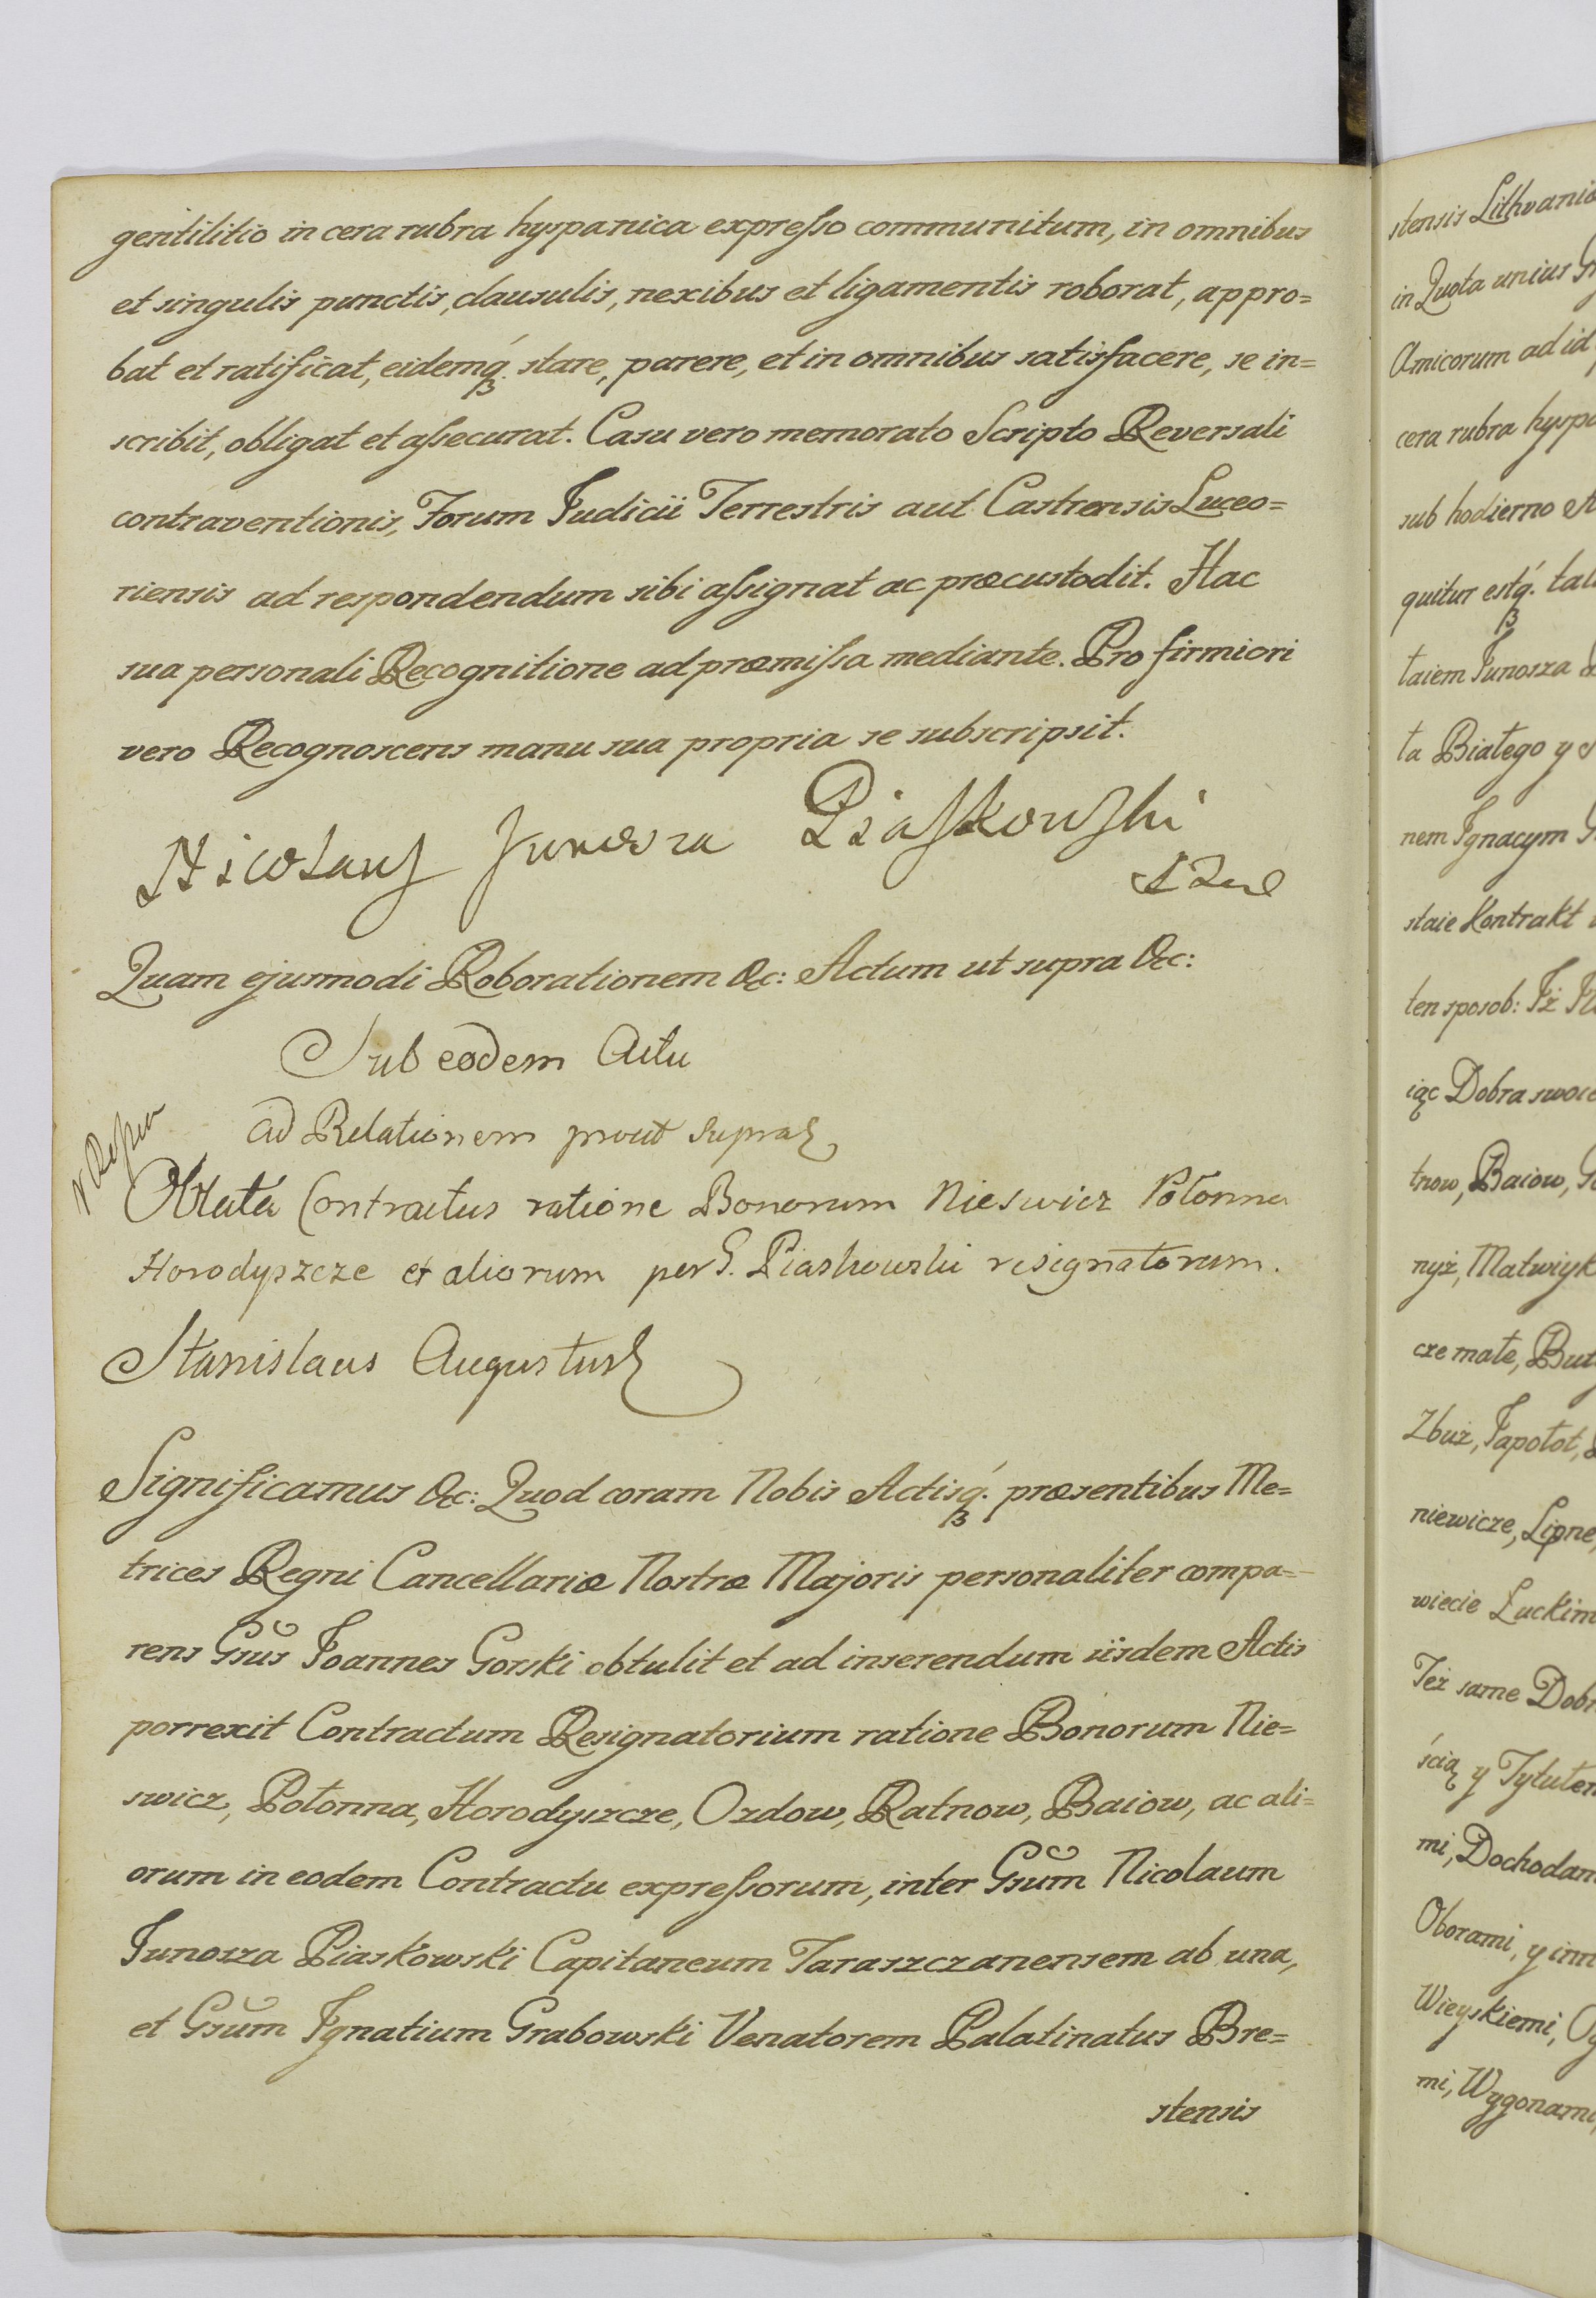 gentilitio in cera rubra hyspanica expresso communitum, in omnibus
et singulis punctis, clausulis, nexibus et ligamentis roborat, appro=
bat et ratificat, eidemq́. stare, parere, et in omnibus satisfacere, se in=
scribit, obligat et assecurat. Casu vero memorato Scripto Reversali
contraventionis, Forum Judicii Terrestris aut Castrensis Luceo=
riensis ad respondendum sibi assignat ac præcustodit. Hac
sua personali Recognitione ad præmissa mediante. Pro firmiori
vero Recognoscens manu sua propria se subscripsit.
Nicolaus Junosza Piaskowski
Quam ejusmodi Roborationem &c: Actum ut supra &c:
Sub eodem Actu
ad Relationem prout supra
Oblata Contractus ratione Bonorum Nieswicz Połonna
Horodyszcze et aliorum per G. Piaskowski resignatorum.
Stanislaus Augustus
Significamus &c: Quod coram Nobis Actisq́. præsentibus Me=
trices Regni Cancellariæ Nostræ Majoris personaliter compa=
rens Gsus Joannes Gorski obtulit et ad inserendum iisdem Actis
porrexit Contractum Resignatorium ratione Bonorum Nie=
swicz, Połonna, Horodyszcze, Ozdow, Ratnow, Baiow, ac ali=
orum in eodem Contractu expressorum, inter Gsum Nicolaum
Junosza Piaskowski Capitaneum Taraszczanensem ab una,
et Gsum Ignatium Grabowski Venatorem Palatinatus Bre=
stensis
stensis Lithvaniæ
in Quota unius
Amicorum ad id
cera rubra
sub hodierno
quitur estq́.
taiem Junosza
ta Białego y
nem Ignacym
staie Kontrakt
ten sposob: Iż
iąc Dobra
tnow, Baiow,
nyż,
cze małe,
Zbuż, Japołot,
niewicze, Lipne,
wiecie Łuckim
Też same
ścią y
mi,
Oborami, y
Wieyskiemi,
mi,